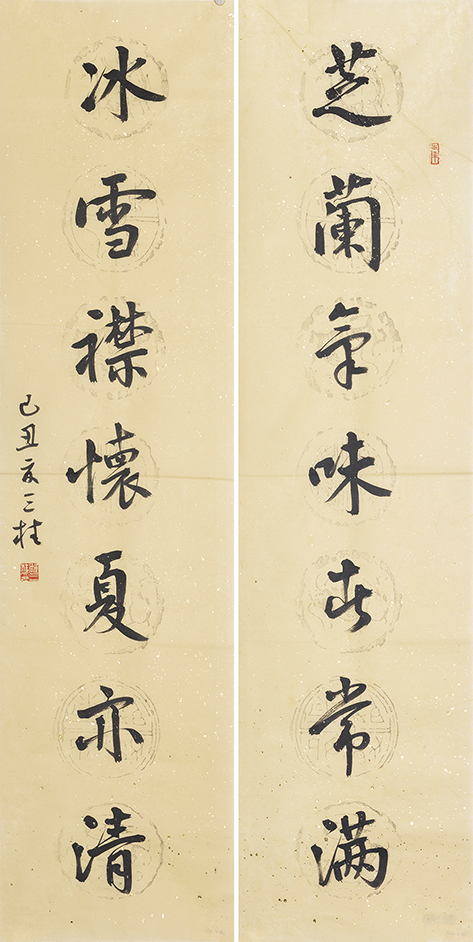 芝蘭氣味旾常满
冰雪襟懷夏亦清
己丑 三桂